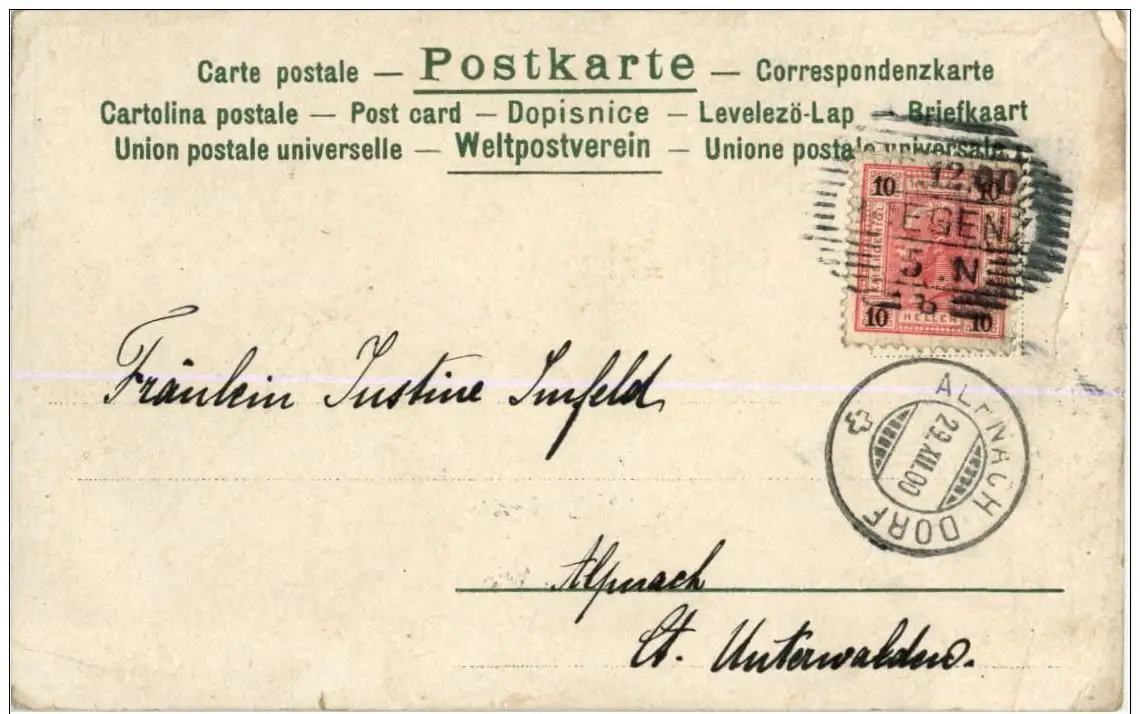 Carte postale — Postkarte — Correspondenzkarte
Cartolina postale — Post card — Dopisnice — Levelezö-Lap — Briefkaart
Union postale universelle — Weltpostverein — Unione postale universale
10 10
12.00
EGEN
5.N
10 HELLER 10
Fräulein Justine Imfeld
ALPNACH DORF
29.XII.00
Alpnach
Ct. Unterwalden.